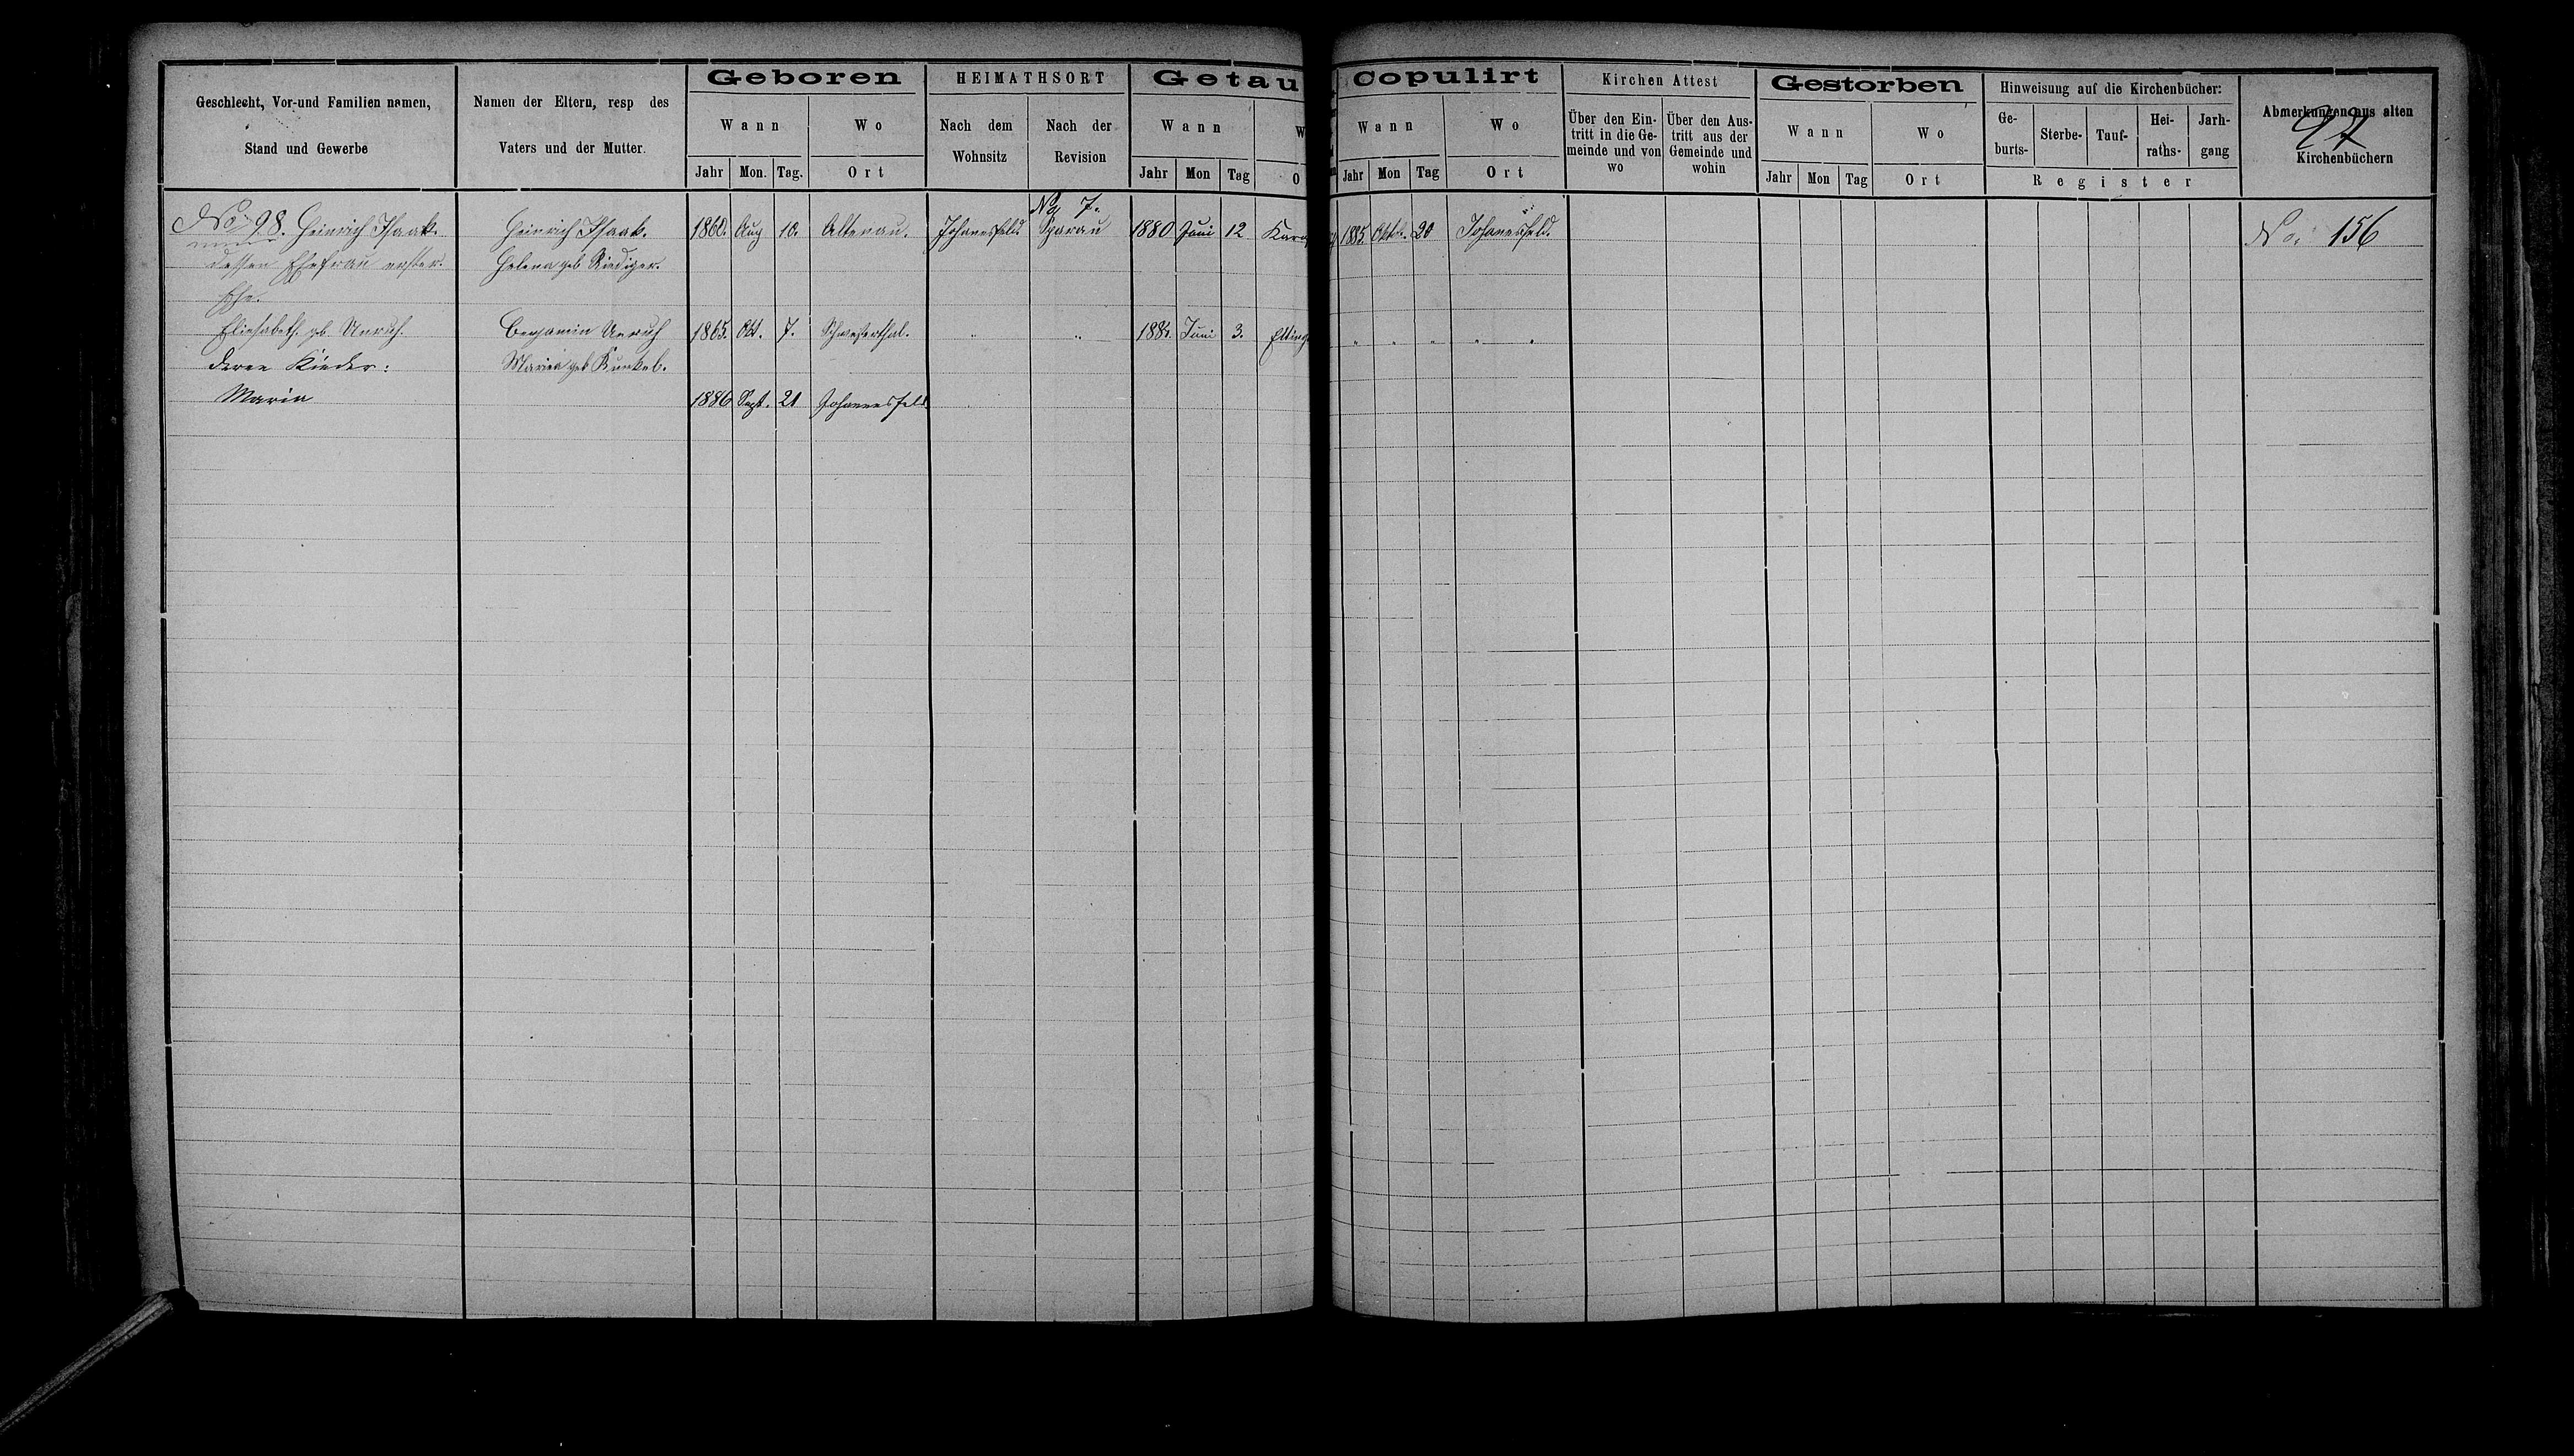 Geschlecht, Vor-und Familien namen,
Stand und Gewerbe
Namen der Eltern, resp des
Vaters und der Mutter.
Geboren
Wann
Wo
Jahr Mon. Tag. Ort
HEIMATHSORT
Nach dem
Wohnsitz
Nach der
Revision
Getau
Wann
W
Jahr Mon Tag O
Copulirt
Wann
Wo
Jahr Mon Tag Ort
Kirchen Attest
Über den Ein-
tritt in die Ge-
meinde und von
wo
Über den Aus-
tritt aus der
Gemeinde und
wohin
Gestorben
Wann
Wo
Jahr Mon Tag Ort
Hinweisung auf die Kirchenbücher:
Ge-
burts-
Sterbe-
Tauf-
Hei-
raths-
Jarh-
gang
Register
Abmerkungen aus alten
Kirchenbüchern
97
No 7.
No 98. Heinrich Isaak. Heinrich Isaak. 1860. Aug 10. Altenau. Johannesfeld Sparau 1880 Juni 12 1885 Okt. 20 Johannesfeld. No. 156
dessen Ehefrau erster. Helena geb Riediger.
Ehe.
Eliesabeth. gb Unruh. Benjamin Unruh 1865. Okt. 7. Schwesterthal. " " Juni 3. " " " " "
deren Kinder: Maria geb Kunkel.
Maria 1886 Sept. 21 Johannesfeld